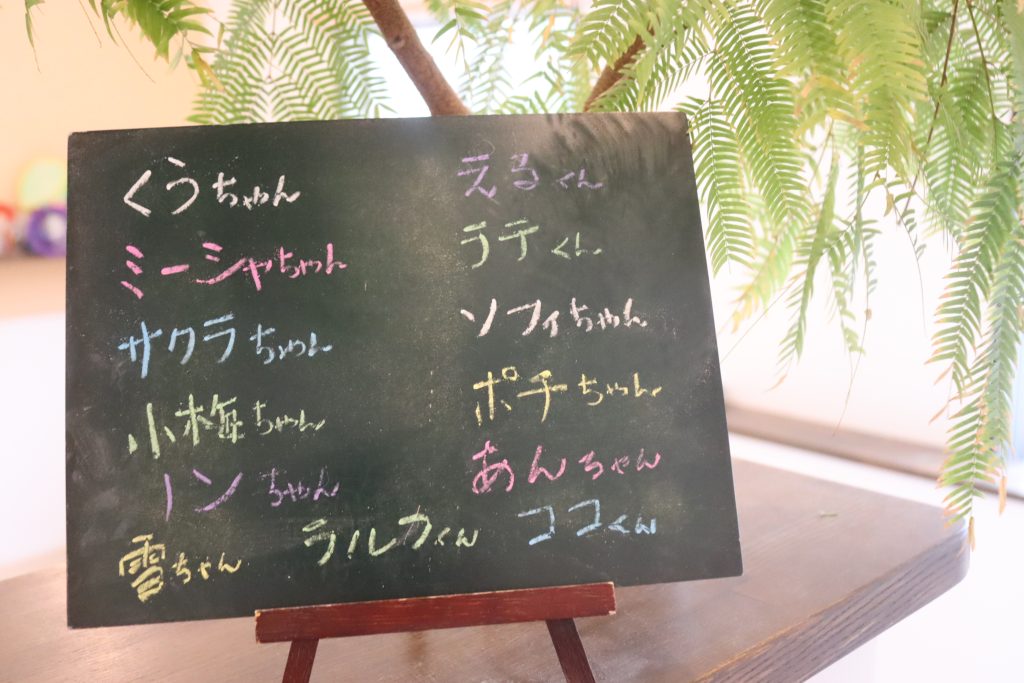 くうちゃん
ミーシャちゃん
サクラちゃん
小梅ちゃん
ノンちゃん
雪ちゃん
えるくん
ラテくん
ソフィちゃん
ポチちゃん
あんちゃん
ラルフくん
ココくん